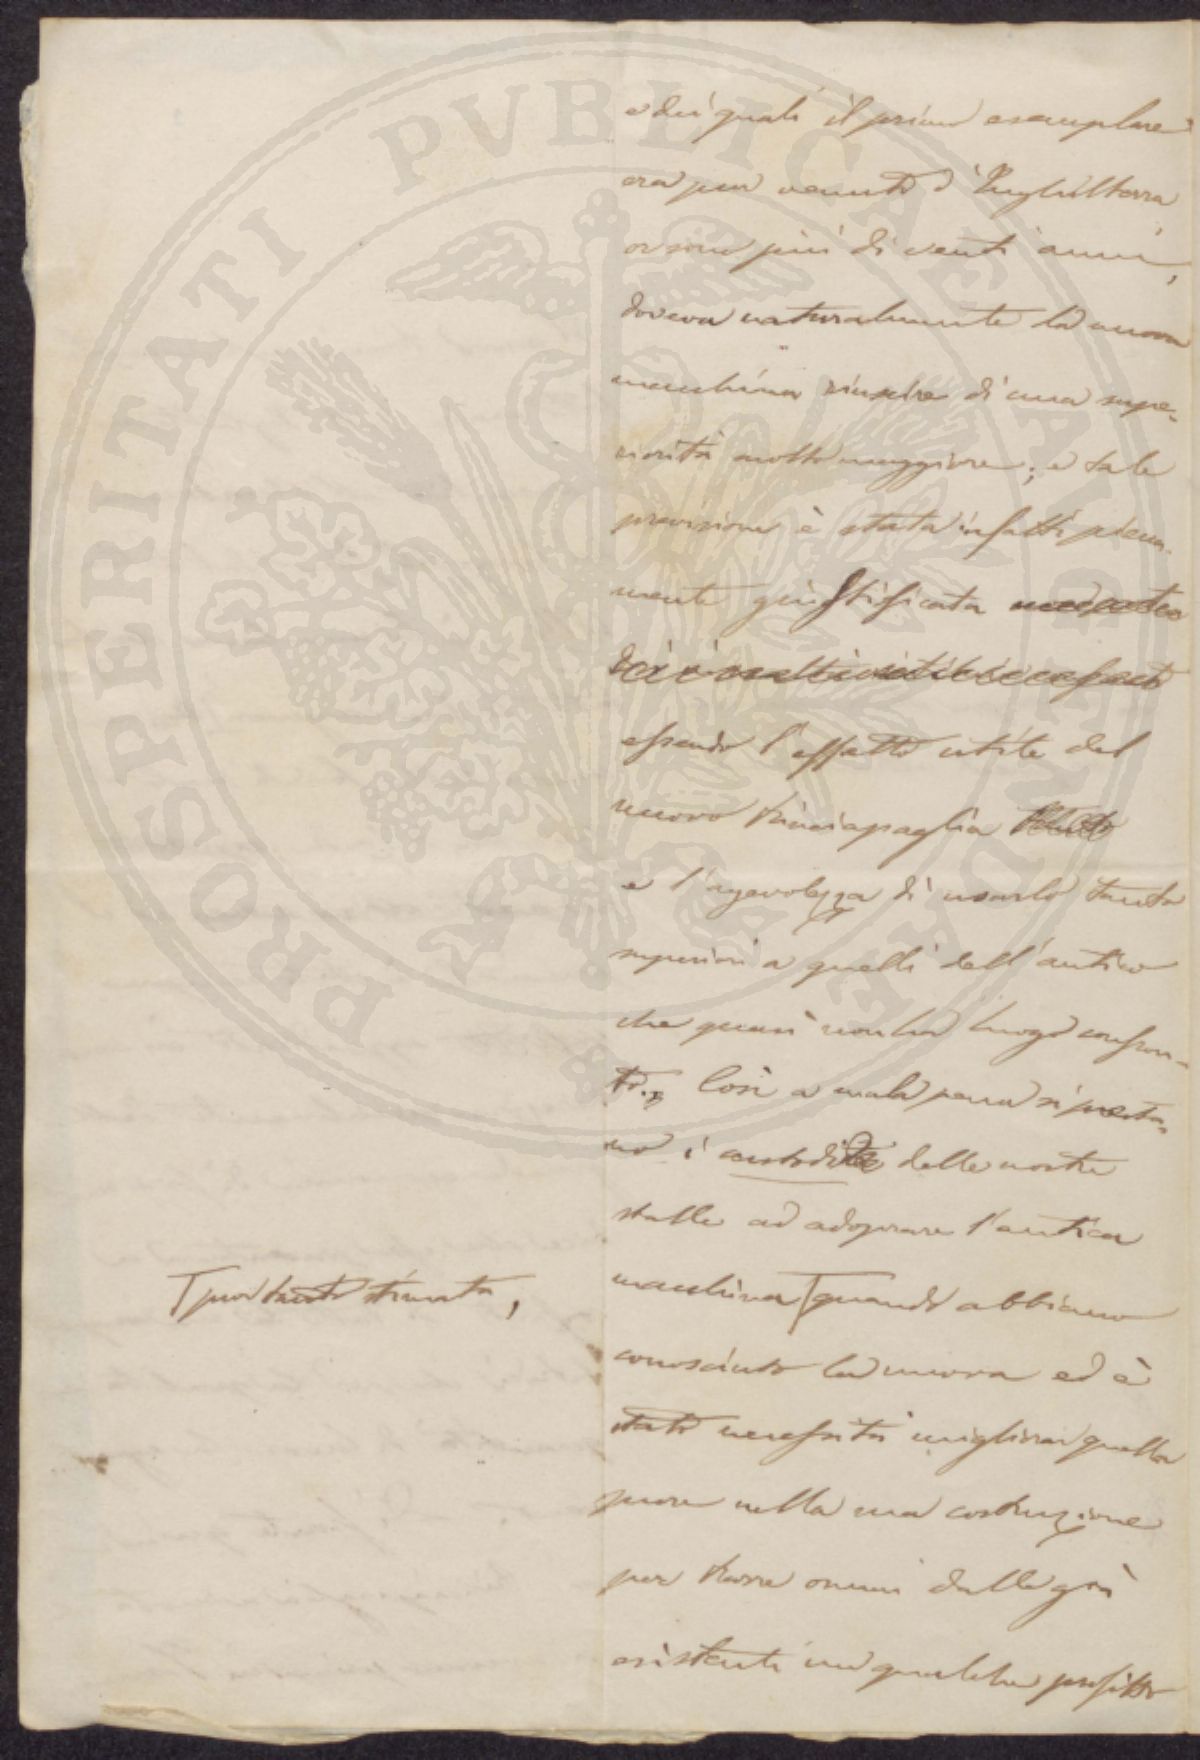 PROSPERITATI PVBLICAE AVGENDAE
e dei quali il primo esemplare
era pur venuto d'Inghilterra
or sono più di venti anni,
doveva naturalmente la nuova
macchina riuscire di una supe-
riorità molto maggiore; e tale
previsione è stata infatti piena-
mente giustificata
essendo l'effetto utile del
nuovo trinciapaglia
e l'agevolezza di usarlo tanto
superiori a quelli dell'antico
che quasi non ha luogo confron-
to. Così a mala pena si presta-
no i custodi delle nostre
stalle ad adoprare l'antica
macchina quando abbiano
pur tanto stimata,
conosciuto la nuova ed è
stato necessità migliorar quella
pure nella sua costruzione
per trarre omai dalle già
esistenti un qualche profitto